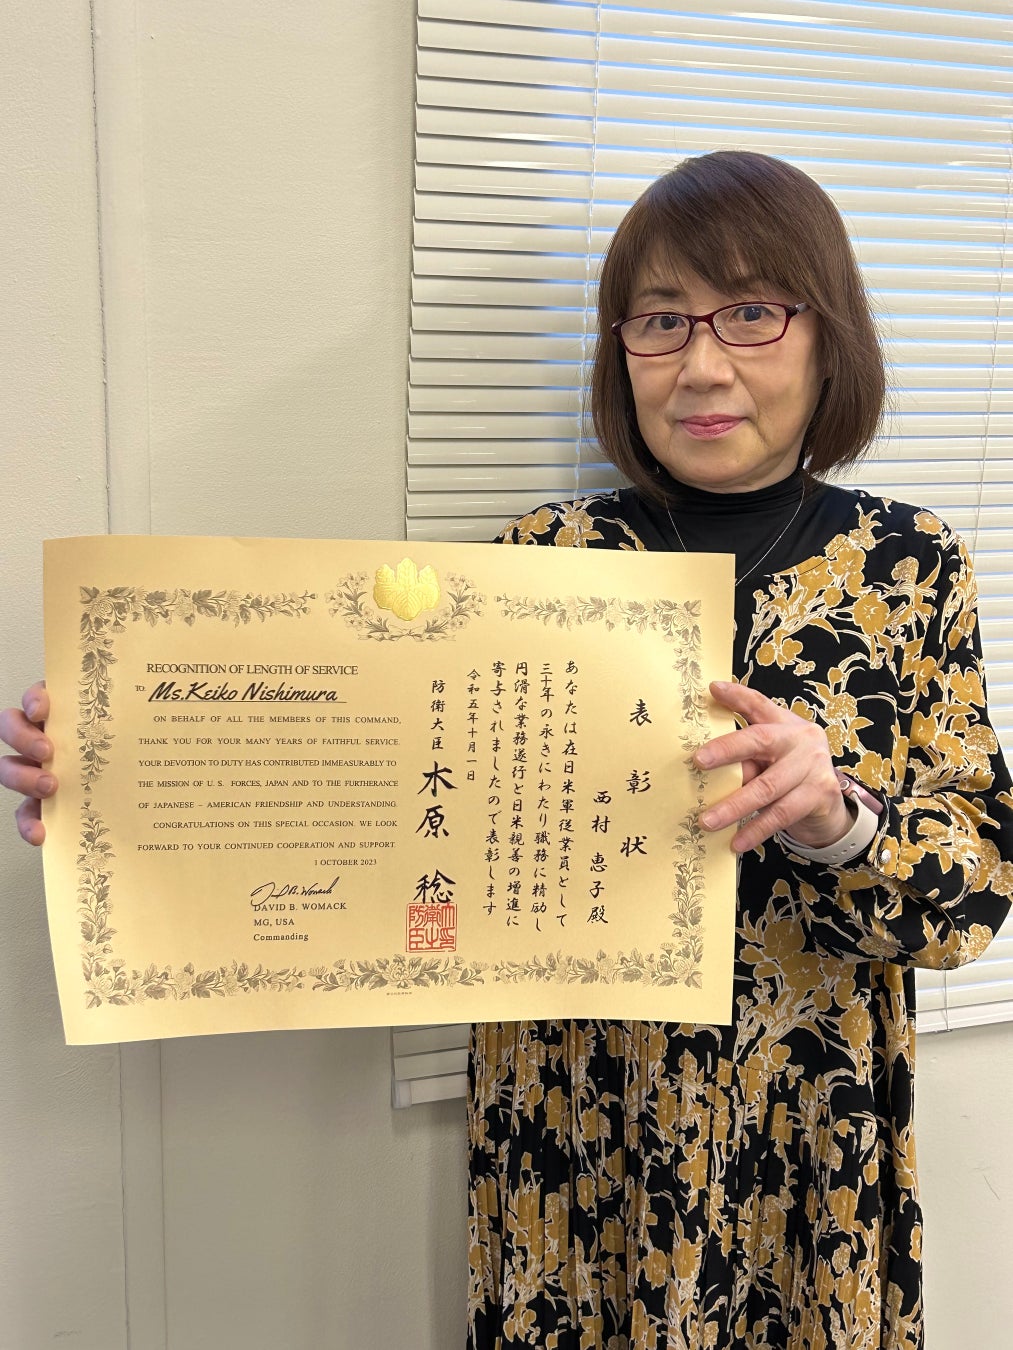 RECOGNITION OF LENGTH OF SERVICE
TO: Ms.Keiko Nishimura
ON BEHALF OF ALL THE MEMBERS OF THIS COMMAND,
THANK YOU FOR YOUR MANY YEARS OF FAITHFUL SERVICE.
YOUR DEVOTION TO DUTY HAS CONTRIBUTED IMMEASURABLY TO
THE MISSION OF U. S. FORCES, JAPAN AND TO THE FURTHERANCE
OF JAPANESE – AMERICAN FRIENDSHIP AND UNDERSTANDING.
CONGRATULATIONS ON THIS SPECIAL OCCASION. WE LOOK
FORWARD TO YOUR CONTINUED COOPERATION AND SUPPORT.
1 OCTOBER 2023
David B. Womack
DAVID B. WOMACK
MG, USA
Commanding
表彰状
西村 恵子殿
あなたは在日米軍従業員として
三十年の永きにわたり職務に精励し
円滑な業務遂行と日米親善の増進に
寄与されましたので表彰します
令和五年十月一日
防衛大臣 木原 稔